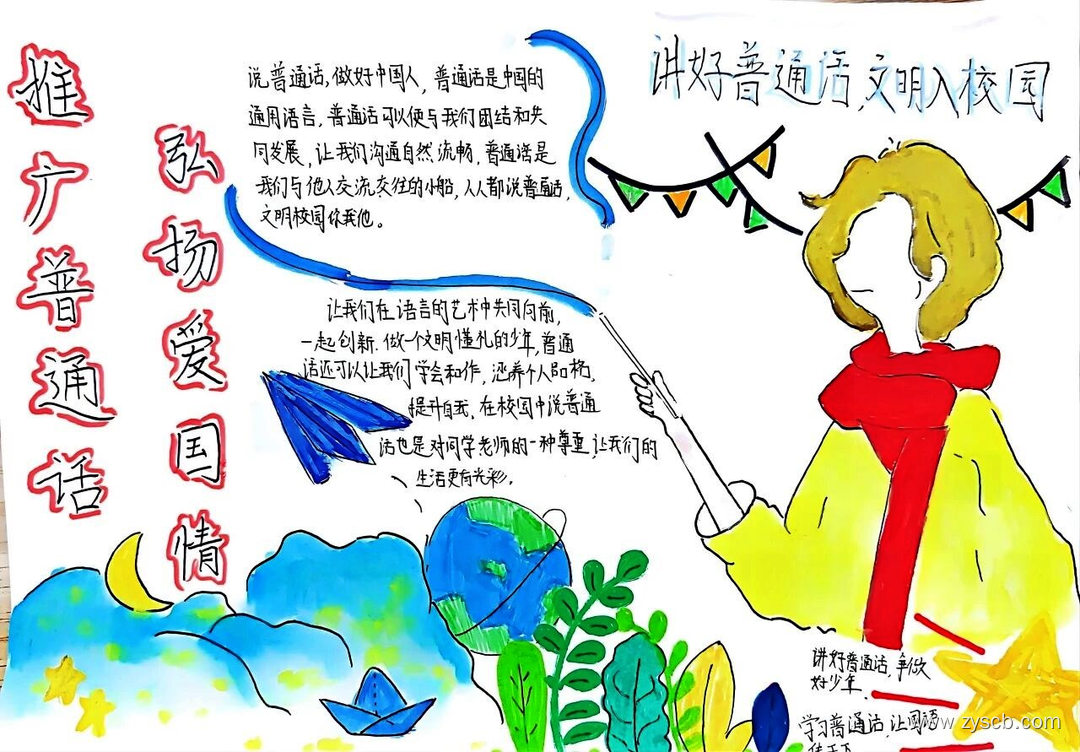 推广普通话
弘扬爱国情
说普通话,做好中国人,普通话是中国的
通用语言,普通话可以使与我们团结和共
同发展,让我们沟通自然,流畅,普通话是
我们与他人交流,交往的小船,人人都说普通话,
文明校园你我他。
讲好普通话,文明入校园
让我们在语言的艺术中共同向前,
一起创新.做一个文明懂礼的少年,普通
话还可以让我们学会和作,涵养个人品格,
提升自我,在校园中说普通
话也是对同学老师的一种尊重,让我们的
生活更有光彩.
讲好普通话,争做
好少年.
学习普通话,让国语
传天下
www.zyscb.com